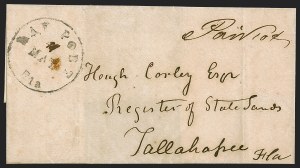 BAY PORT
4
MAR
Fla
Paid 10 c
Hough Corley Esqr
Register of State Lands
Tallahassee
Fla